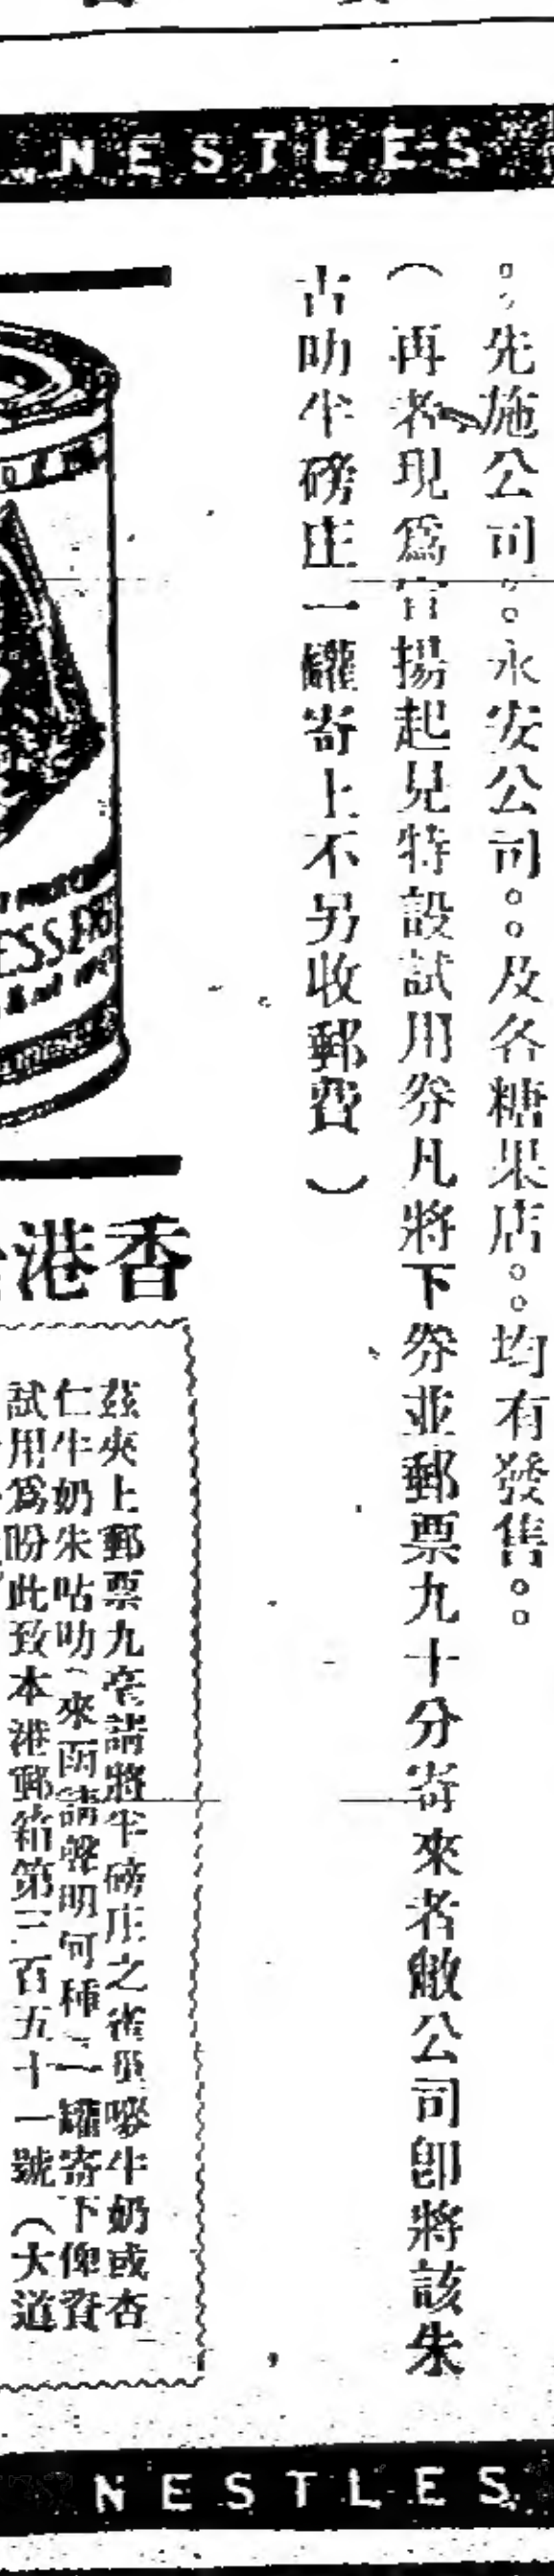 NESTLES
。先施公司。。永安公司。。及各糖果店。。均有發售。。
（再者現爲宣揚起見特設試用劵凡將下劵並郵票九十分寄來者敝公司卽將該朱
古叻半磅庄一罐寄上不另收郵費）
香港
茲夾上郵票九毫請將半磅庄之雀巢嘜牛奶或杏
仁牛奶朱咕叻（來函請聲明何種）一罐寄下俾資
試用爲盼此致本港郵箱第三百五十一號（大道
NESTLES